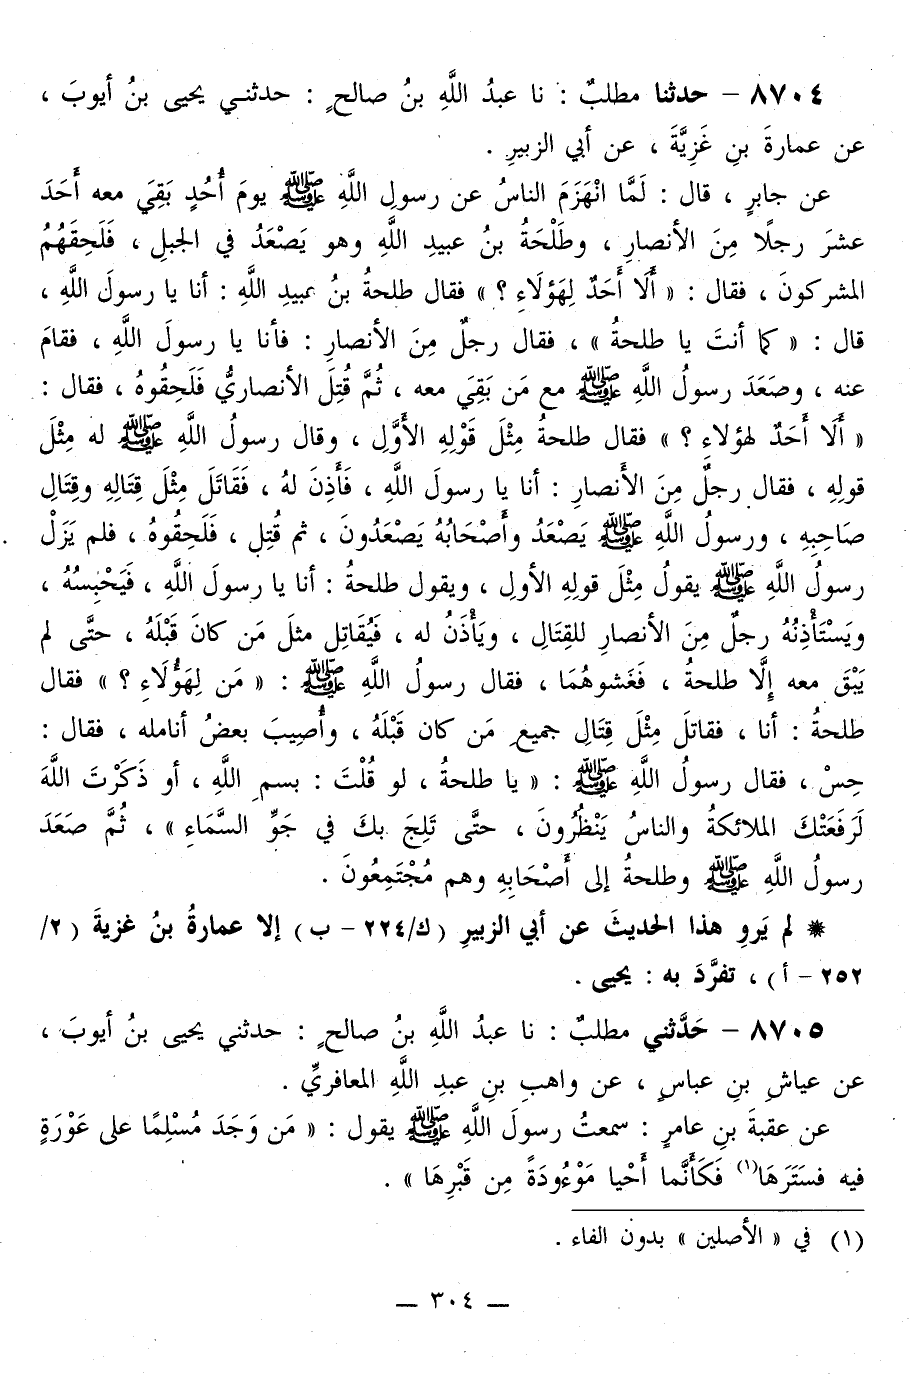 ٨٧٠٤ - حدثنا مطلبٌ : نا عبدُ اللَّهِ بنُ صالحٍ : حدثنـي يحيى بنُ أيوبَ ،
عن عمارةَ بنِ غَزِيَّةَ ، عن أبي الزبيرِ .
عن جابرٍ ، قال : لَمَّا انْهَزَمَ الناسُ عن رسولِ اللَّهِ ﷺ يومَ أُحُدٍ بَقِيَ معه أَحَدَ
عشرَ رجلًا مِنَ الأنصارِ ، وطَلْحَةُ بنُ عبيدِ اللَّهِ وهو يَصْعَدُ في الجبلِ ، فَلَحِقَهُمُ
المشركونَ ، فقال : « أَلَا أَحَدٌ لِهَؤُلَاءِ ؟ » فقال طلحةُ بنُ عبيدِ اللَّهِ : أنا يا رسولَ اللَّهِ ،
قال : « كما أنتَ يا طلحةُ » ، فقال رجلٌ مِنَ الأنصارِ : فأنا يا رسولَ اللَّهِ ، فقامَ
عنه ، وصَعَدَ رسولُ اللَّهِ ﷺ مع مَن بَقِيَ معه ، ثُمَّ قُتِلَ الأنصاريُّ فَلَحِقُوهُ ، فقال :
« أَلَا أَحَدٌ لهؤلاءِ ؟ » فقال طلحةُ مِثْلَ قَوْلِهِ الأَوَّلِ ، وقال رسولُ اللَّهِ ﷺ له مِثْلَ
قولِهِ ، فقال رجلٌ مِنَ الأَنصارِ : أنا يا رسولَ اللَّهِ ، فَأَذِنَ لهُ ، فَقَاتَلَ مِثْلَ قِتَالِهِ وقِتَالِ
صَاحِبِهِ ، ورسولُ اللَّهِ ﷺ يَصْعَدُ وأَصْحَابُهُ يَصْعَدُونَ ، ثم قُتِل ، فَلَحِقُوهُ ، فلم يَزَلْ
رسولُ اللَّهِ ﷺ يقولُ مِثْلَ قولِهِ الأولِ ، ويقول طلحةُ : أنا يا رسولَ اللَّهِ ، فَيَحْبِسُهُ ،
ويَسْتَأْذِنُهُ رجلٌ مِنَ الأنصارِ للقِتَالِ ، ويَأْذَنُ له ، فَيُقَاتِل مثلَ مَن كانَ قَبْلَهُ ، حتَّى لم
يَبْقَ معه إِلَّا طلحةُ ، فَغَشوهُمَا ، فقال رسولُ اللَّهِ ﷺ : « مَن لِهَؤُلَاءِ ؟ » فقال
طلحةُ : أنا ، فقاتلَ مِثْلَ قِتَالِ جميعِ مَن كان قَبْلَهُ ، وأُصِيبَ بعضُ أنامله ، فقال :
حِسْ ، فقال رسولُ اللَّهِ ﷺ : « يا طلحةُ ، لو قُلْتَ : بسمِ اللَّهِ ، أو ذَكَرْتَ اللَّهَ
لَرَفَعَتْكَ الملائكةُ والناسُ يَنْظُرُونَ ، حتَّى تَلِجَ بكَ في جَوِّ السَّمَاءِ » ، ثُمَّ صَعَدَ
رسولُ اللَّهِ ﷺ وطلحةُ إلى أَصْحَابِهِ وهم مُجْتَمِعُونَ .
* لم يَروِ هذا الحديثَ عن أبي الزبيرِ ( ك/٢٢٤ - ب ) إلا عمارةُ بنُ غزيةَ ( ٢/
٢٥٢ - أ ) ، تفرَّدَ به : يحيى .
٨٧٠٥ - حَدَّثني مطلبٌ : نا عبدُ اللَّهِ بنُ صالحٍ : حدثني يحيى بنُ أيوبَ ،
عن عياشِ بنِ عباسٍ ، عن واهبِ بنِ عبدِ اللَّهِ المعافريِّ .
عن عقبةَ بنِ عامرٍ : سمعتُ رسولَ اللَّهِ ﷺ يقول : « مَن وَجَدَ مُسْلِمًا على عَوْرَةٍ
فيه فسَتَرَهَا(١) فَكَأَنَّما أَحْيا مَوْءُودَةً مِن قَبْرِهَا » .
(١) في « الأصلين » بدون الفاء .
— ٣٠٤ —